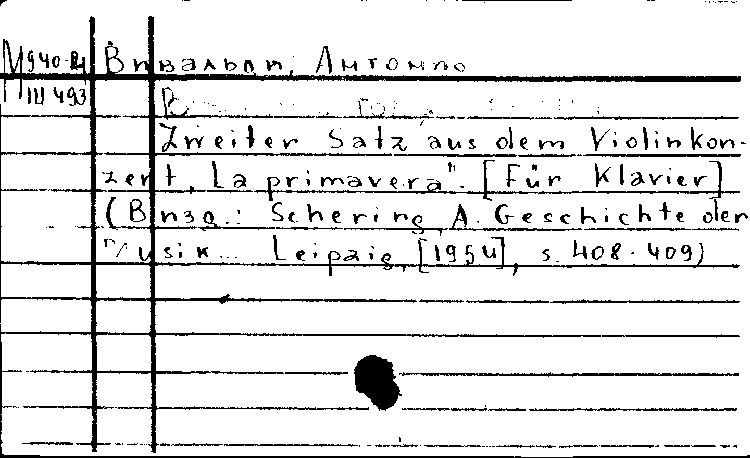 М940-84 Вивальди, Антонио
Ш 493
Zweiter Satz aus dem Violinkon-
zert „La primavera". [Für Klavier]
(В изд.: Schering, A. Geschichte der
Musik... Leipzig, [1954], s. 408-409)